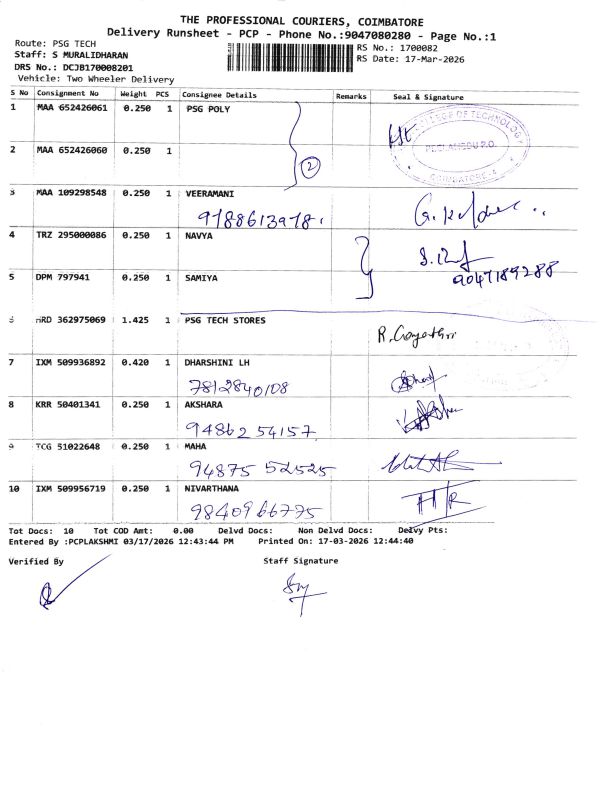 THE PROFESSIONAL COURIERS, COIMBATORE
Delivery Runsheet - PCP - Phone No.:9047080280 - Page No.:1
Route: PSG TECH
Staff: S MURALIDHARAN
DRS No.: DCJB170008201
Vehicle: Two Wheeler Delivery
RS No.: 1700082
RS Date: 17-Mar-2026
S No Consignment No Weight PCS Consignee Details Remarks Seal & Signature
1 MAA 652426061 0.250 1 PSG POLY
COLLEGE OF TECHNOLOGY
PEELAMEDU P.O.
COIMBATORE-4
2 MAA 652426060 0.250 1
2
3 MAA 109298548 0.250 1 VEERAMANI
9788613978
4 TRZ 295000086 0.250 1 NAVYA
9047189288
5 DPM 797941 0.250 1 SAMIYA
6 HRD 362975069 1.425 1 PSG TECH STORES
R. Gayathri
7 IXM 509936892 0.420 1 DHARSHINI LH
7812840108
8 KRR 50401341 0.250 1 AKSHARA
9486254157
9 TCG 51022648 0.250 1 MAHA
94875 52525
10 IXM 509956719 0.250 1 NIVARTHANA
9840966775
Tot Docs: 10 Tot COD Amt: 0.00 Delvd Docs: Non Delvd Docs: Delvy Pts:
Entered By :PCPLAKSHMI 03/17/2026 12:43:44 PM Printed On: 17-03-2026 12:44:40
Verified By Staff Signature